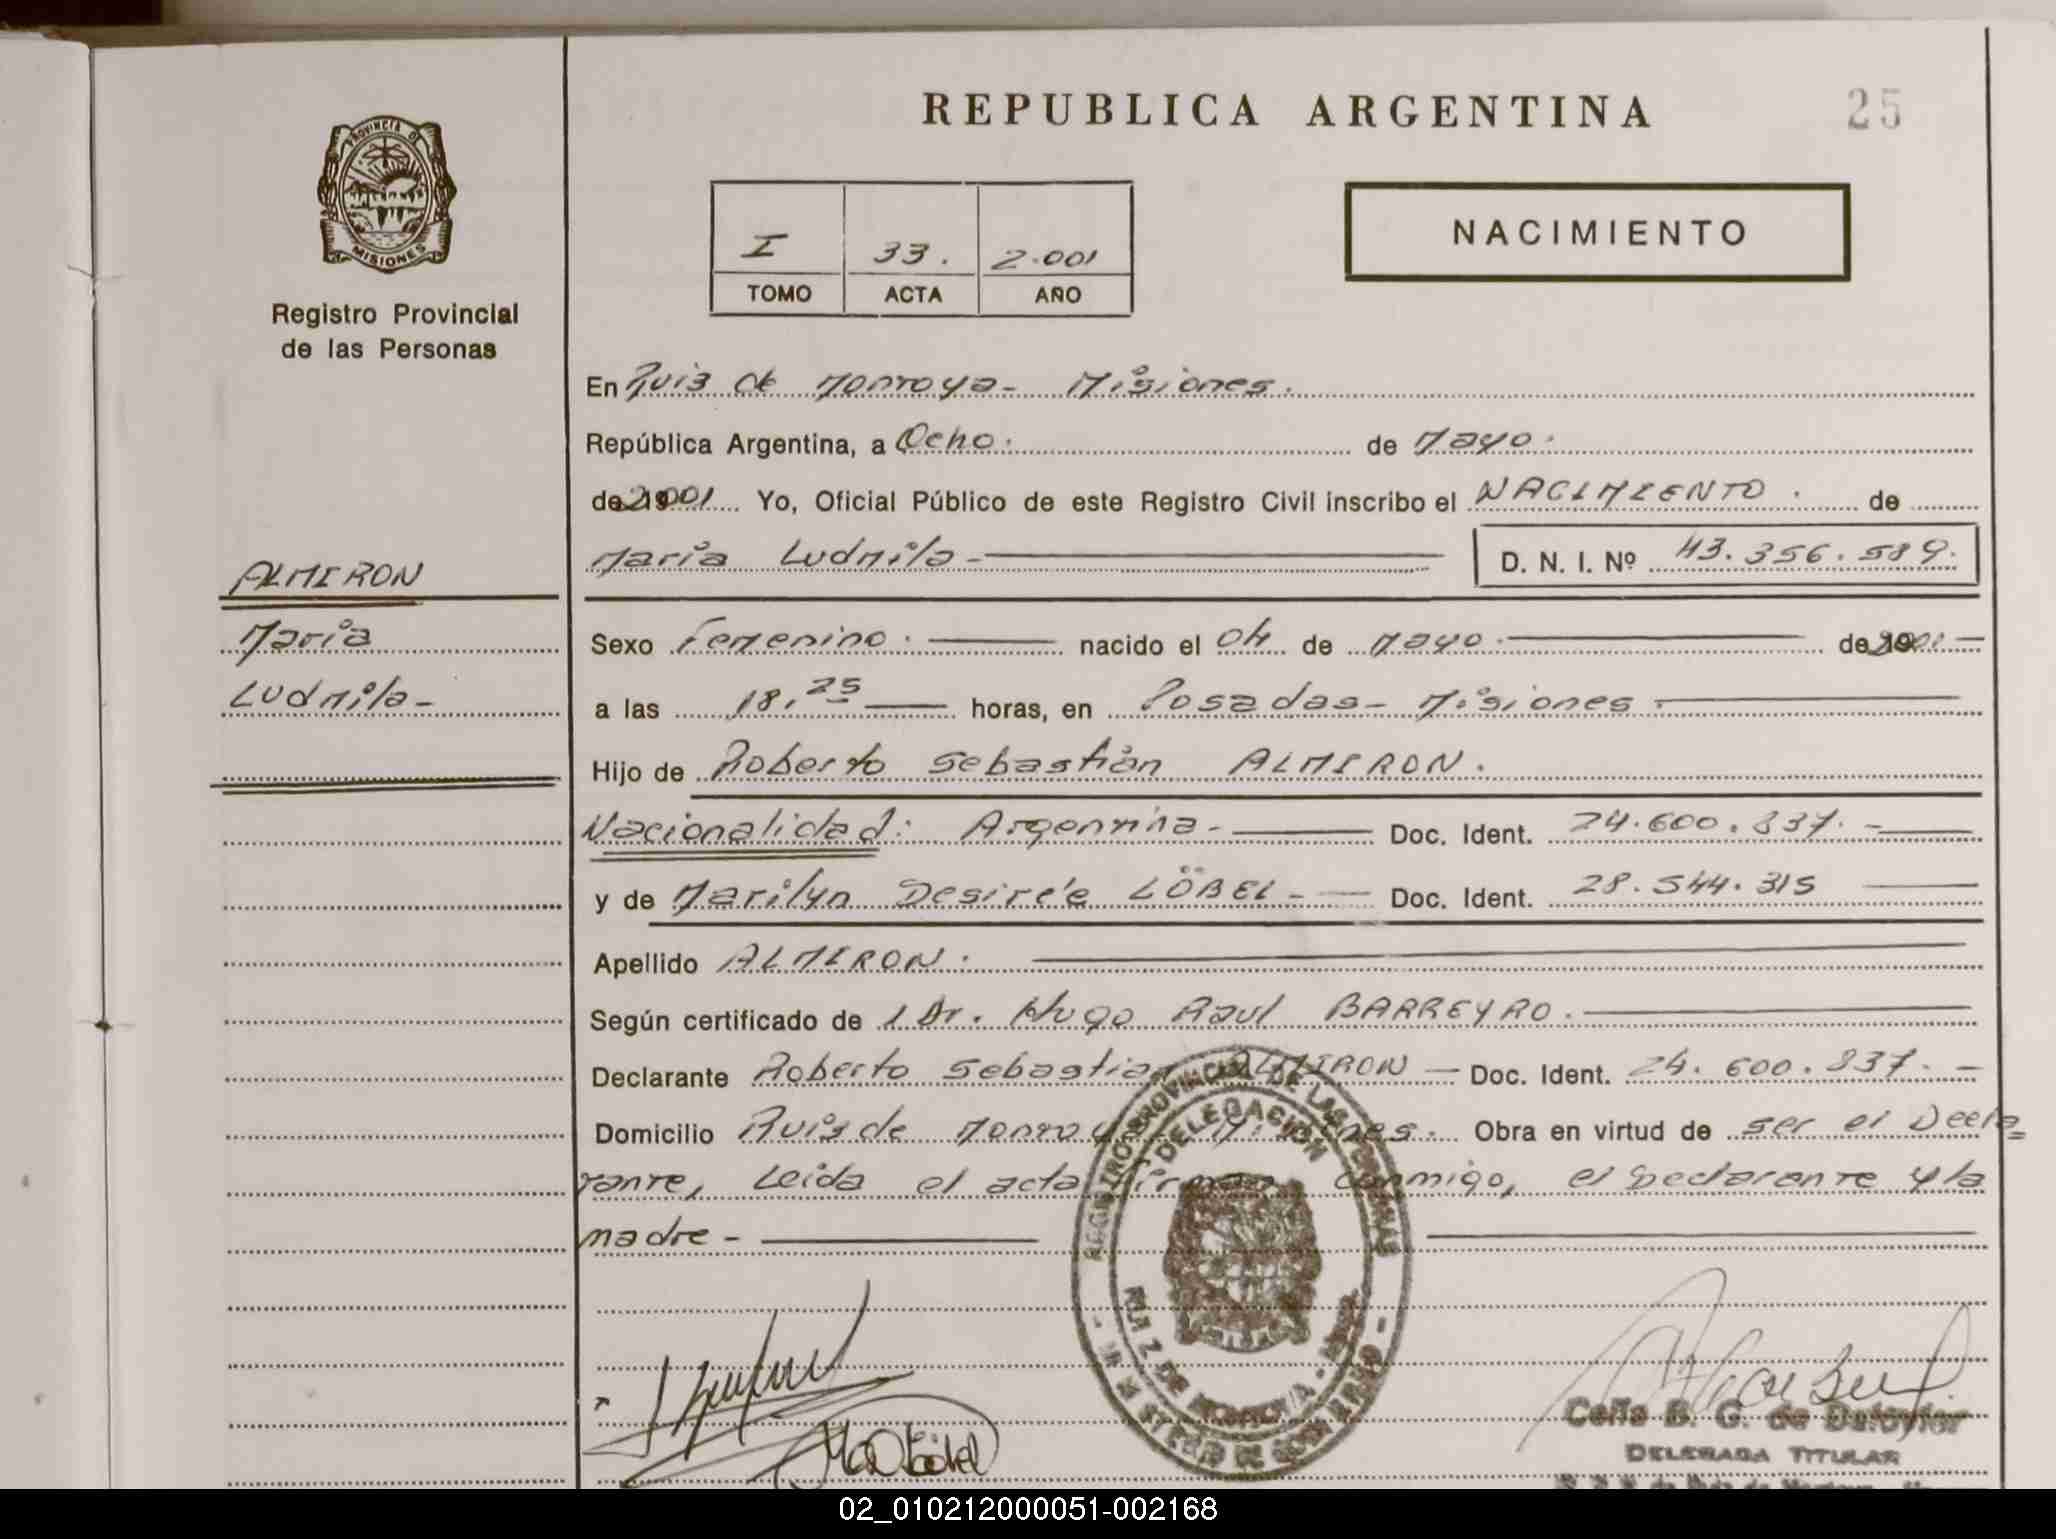 REPUBLICA ARGENTINA
25
PROVINCIA DE
MISIONES
Registro Provincial
de las Personas
I 33. 2.001
TOMO ACTA AÑO
NACIMIENTO
En Ruiz de Montoya - Misiones.
República Argentina, a Ocho. de Mayo.
de 2001 Yo, Oficial Público de este Registro Civil inscribo el NACIMIENTO. de
María Ludmila - D. N. I. Nº 43.356.589.
ALMIRON
María
Ludmila -
Sexo Femenino. nacido el 04 de Mayo. de 2001 -
a las 18,25 horas, en Posadas - Misiones
Hijo de Roberto Sebastián ALMIRON.
Nacionalidad: Argentina - Doc. Ident. 24.600.837. -
y de Marilyn Desirée LÖBEL - Doc. Ident. 28.544.315
Apellido ALMIRON.
Según certificado de 1 Dr. Hugo Raul BARREYRO.
Declarante Roberto Sebastian ALMIRON - Doc. Ident. 24.600.837. -
Domicilio Ruiz de Montoya Misiones. Obra en virtud de ser el Decla=
rante, Leída el acta firman conmigo, el Declarante y la
madre -
REGISTRO PROVINCIAL DE LAS PERSONAS
DELEGACION
RUIZ DE MONTOYA
MINISTERIO DE GOBIERNO
Celia B. G. de
DELEGADA TITULAR
02_010212000051-002168